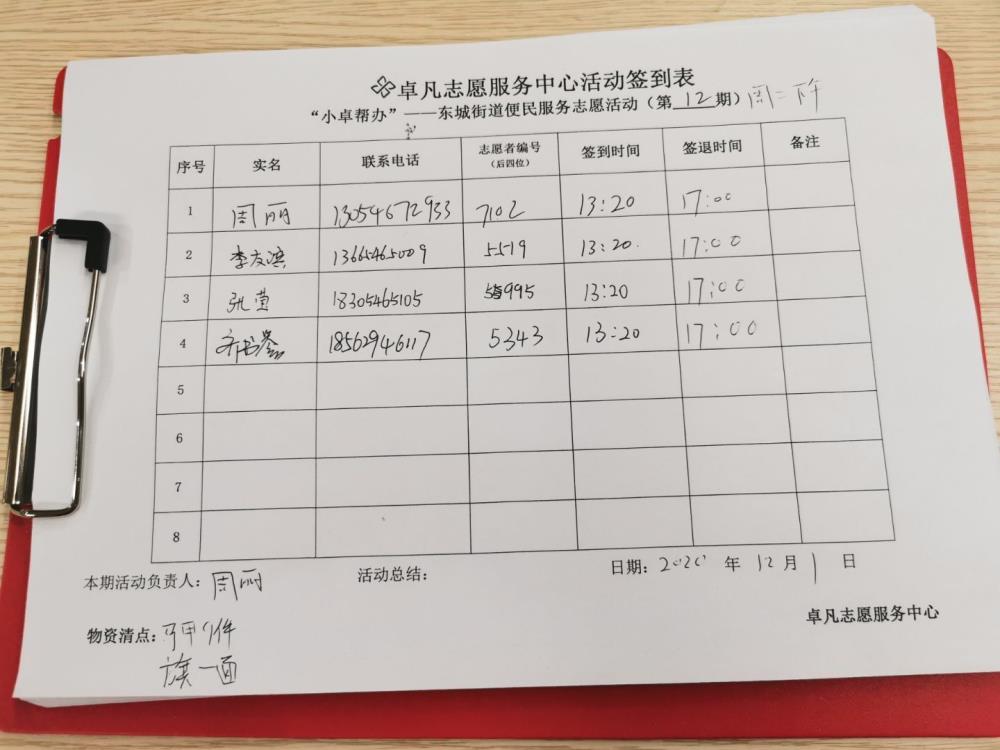 卓凡志愿服务中心活动签到表
“小卓帮办”——东城街道便民服务志愿活动（第 12 期）周二下午
序号 实名 联系电话 志愿者编号（后四位） 签到时间 签退时间 备注
1 周丽 13054672933 7102 13:20 17:00
2 李友滨 13665465009 5519 13:20 17:00
3 张莹 18305465105 995 13:20 17:00
4 18562946117 5343 13:20 17:00
5
6
7
8
本期活动负责人：周丽 活动总结： 日期：2020 年 12 月 1 日
卓凡志愿服务中心
物资清点：马甲 件
旗一面